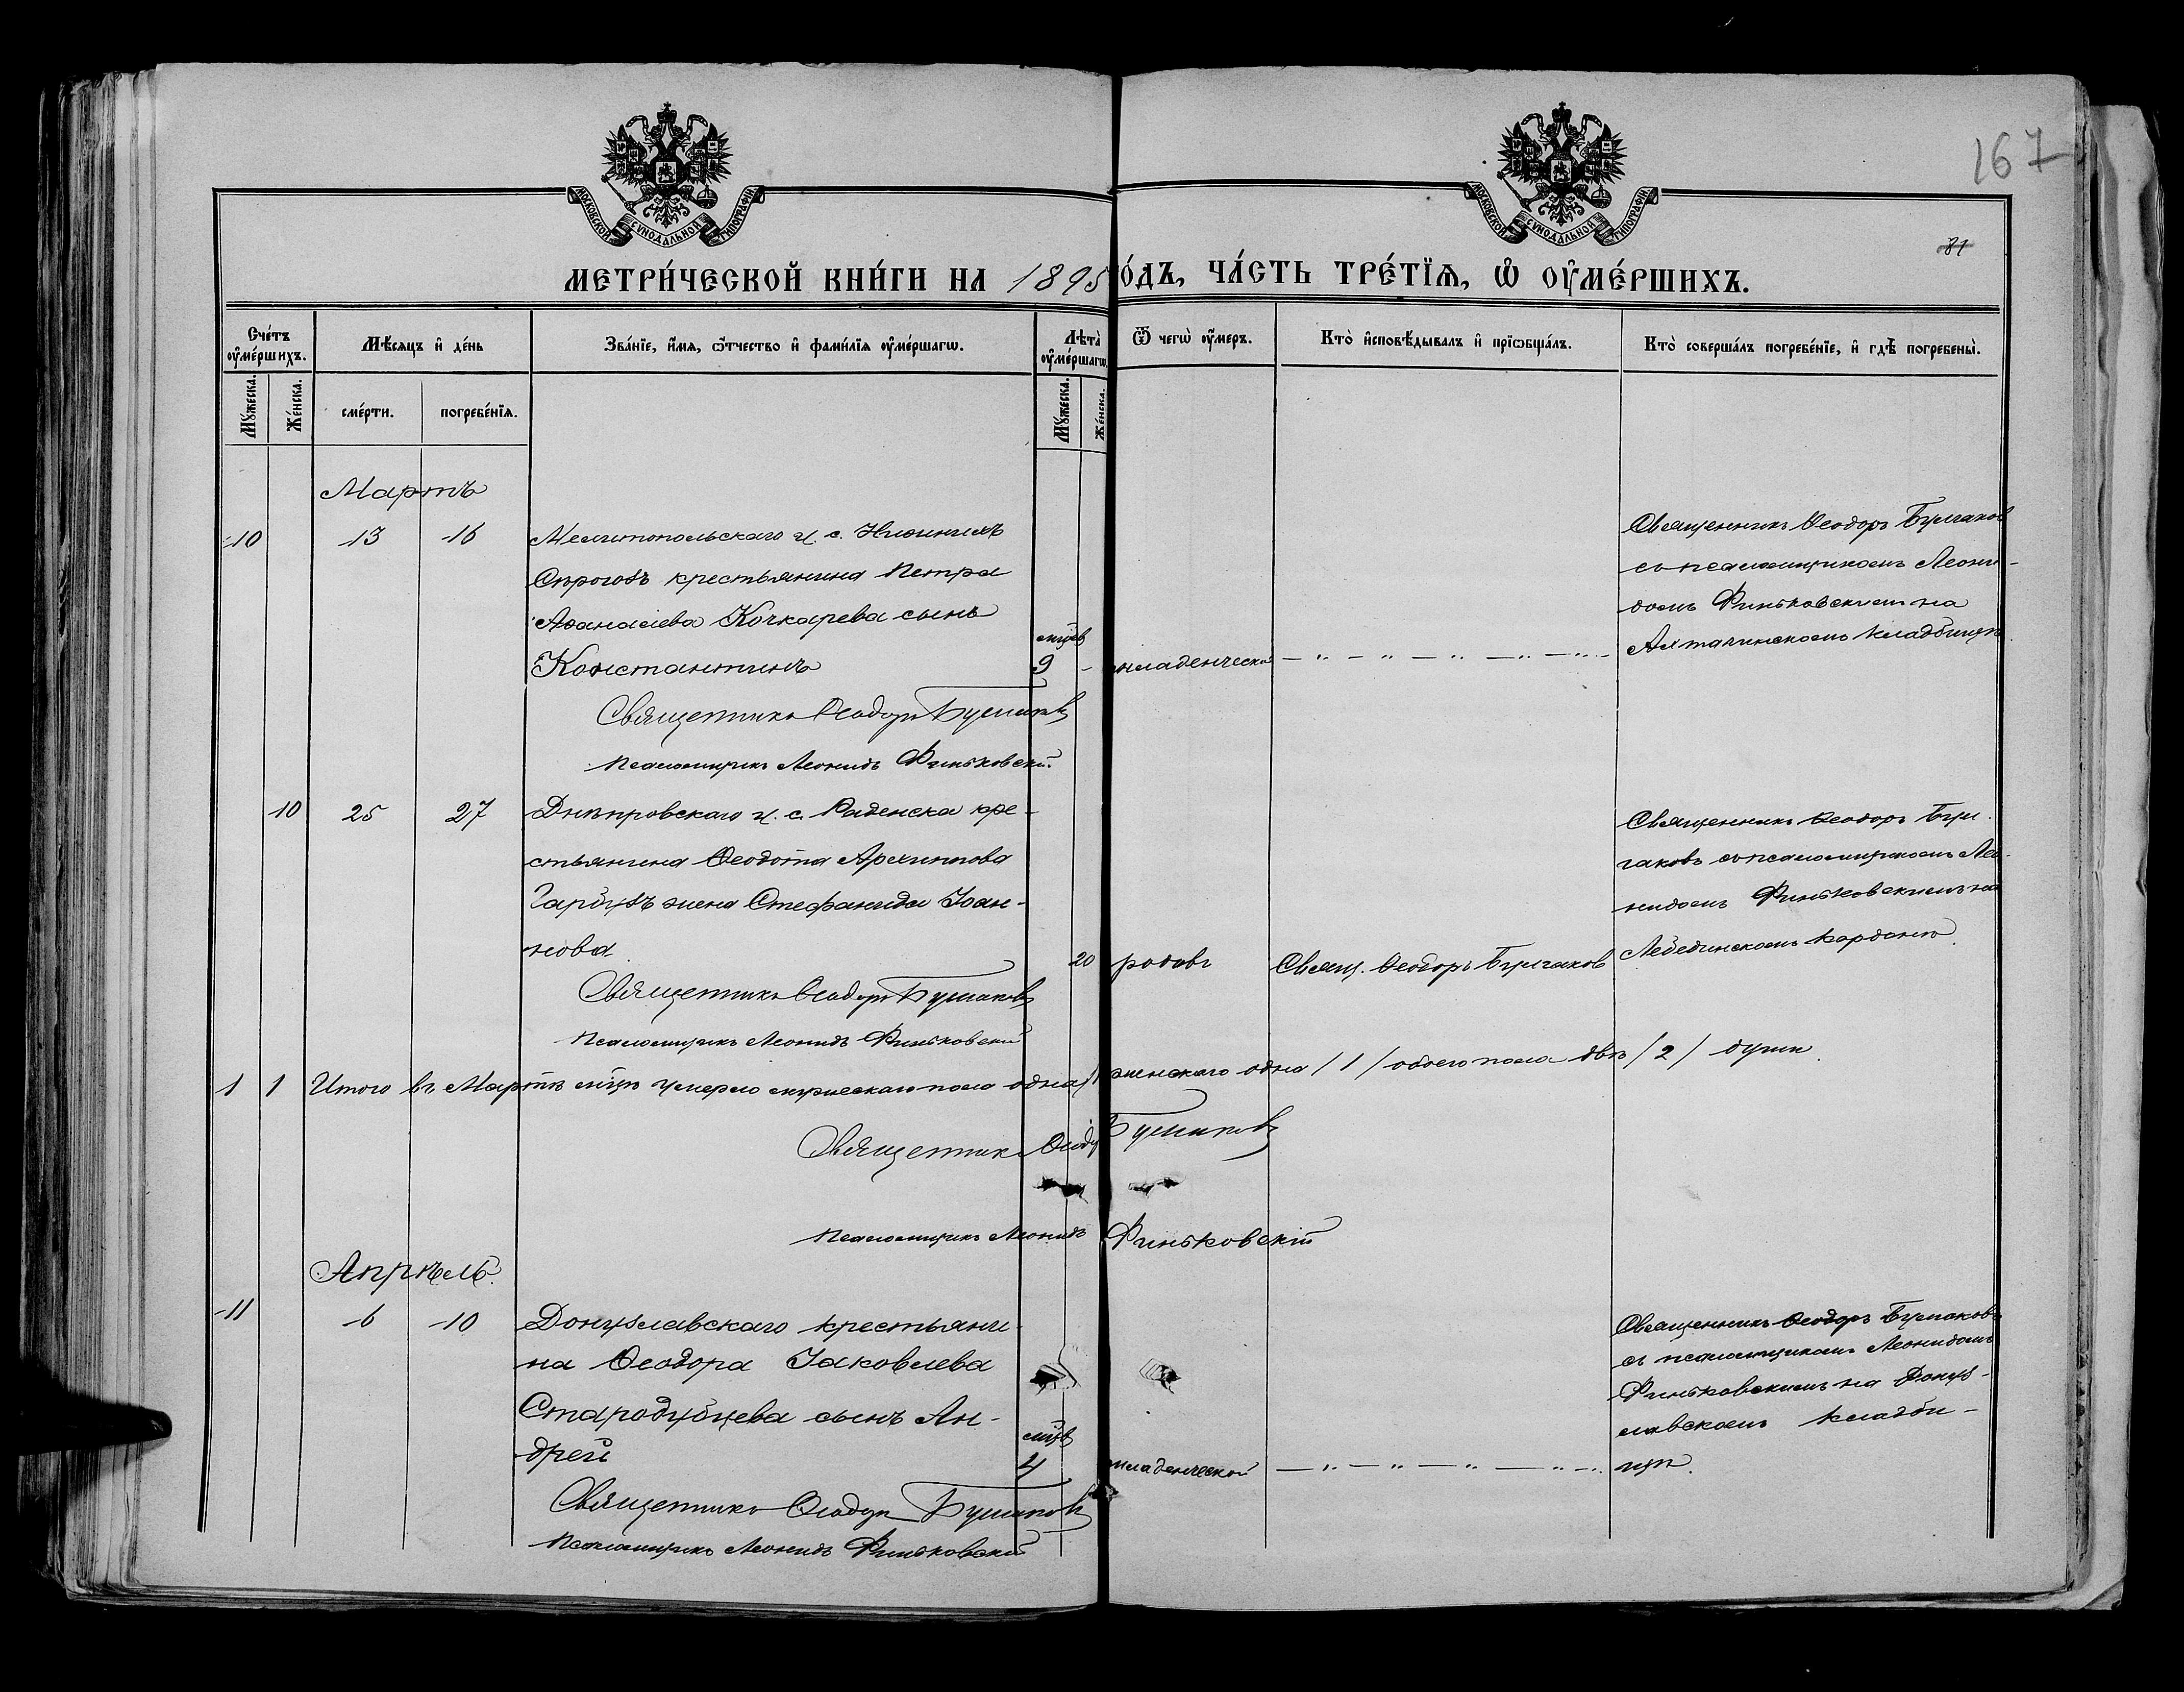 167
81
МОСКОВСКОЙ СѴНОДАЛЬНОЙ ТИПОГРАФІИ
МОСКОВСКОЙ СѴНОДАЛЬНОЙ ТИПОГРАФІИ
МЕТРИ́ЧЕСКОЙ КНИ́ГИ НА 1895 О́ДЪ, ЧА́СТЬ ТРЕ́ТІѦ, Ѡ҆ ОУ҆МЕ́РШИХЪ.
Сче́тъ оу҆ме́ршихъ.
Мѣ́сяцъ и҆ де́нь
Зва́нїе, и҆́мя, ѻ҆́тчество и҆ фами́лїя оу҆ме́ршагѡ.
Лѣта̀ оу҆ме́ршагѡ
Ѿ чегѡ̀ оу҆́меръ.
Кто̀ и҆сповѣ́дывалъ и҆ прїѡбща́лъ.
Кто̀ соверша́лъ погребе́нїе, и҆ гдѣ̀ погребены̀.
Мꙋ́жеска.
Же́нска.
сме́рти.
погребе́нїя.
Мꙋ́жеска.
Же́нска.
Мартъ
10 13 16 Мелитопольскаго у. с. Нижнихъ
Сѣрогозъ крестьянина Петра
Аѳанасіева Кочкарева сынъ
Константинъ
мцев
9 - младенческой — „ — „ — „ — „ — „ —
Священникъ Ѳеодоръ Булгаков
съ псаломщикомъ Леони-
домъ Финьковскимъ на
Ахтачинскомъ кладбищѣ.
Священникъ Ѳеодоръ Булгаковъ
Псаломщикъ Леонидъ Финьковскій
10 25 27 Днѣпровскаго у. с. Раденска кре-
стьянина Ѳеодота Архиппова
Гарбузъ жена Стефанида Іоан-
нова.
20 родовъ Свящ. Ѳеодоръ Булгаков
Священникъ Ѳеодоръ Бул-
гаковъ съ псаломщикомъ Лео-
нидомъ Финьковскимъ на
Лебединскомъ кордонѣ.
Священникъ Ѳеодоръ Булгаковъ
Псаломщикъ Леонидъ Финьковскій
1 1 Итого въ Мартѣ мцѣ умерло мужескаго пола одна /1 женскаго одна /1/ обоего пола двѣ /2/ души.
Священникъ Ѳеодоръ Булгаковъ
Псаломщикъ Леонидъ Финьковскій
Апрѣль.
11 6 10 Донузлавскаго крестьяни-
на Ѳеодора Іаковлева
Стародубцева сынъ Ан-
дрей
мцев
4 младенческой — „ — „ — „ — „ —
Священникъ Ѳеодоръ Булгаковъ
съ псаломщикомъ Леонидомъ
Финьковскимъ на Донуз-
лавскомъ кладби-
щѣ.
Священникъ Ѳеодоръ Булгаковъ
Псаломщикъ Леонидъ Финьковскій